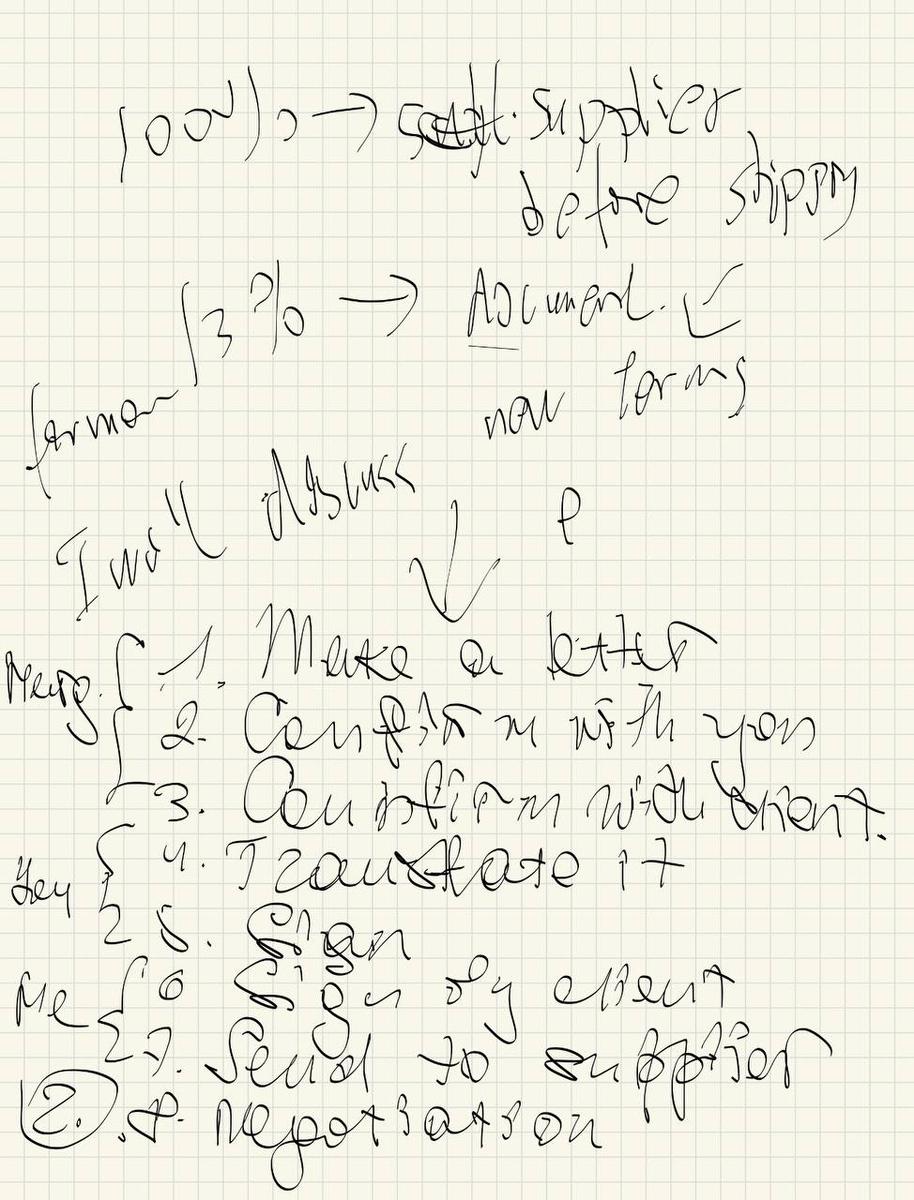 100% → supplier
before shipping
13% → Document.
new terms
I will discuss
1. Make a letter
2. Confirm with you
3. Confirm with client.
4. Translate it
5. Sign
Me 6 Sign by client
7. Send to supplier
2. 8. Negotiation